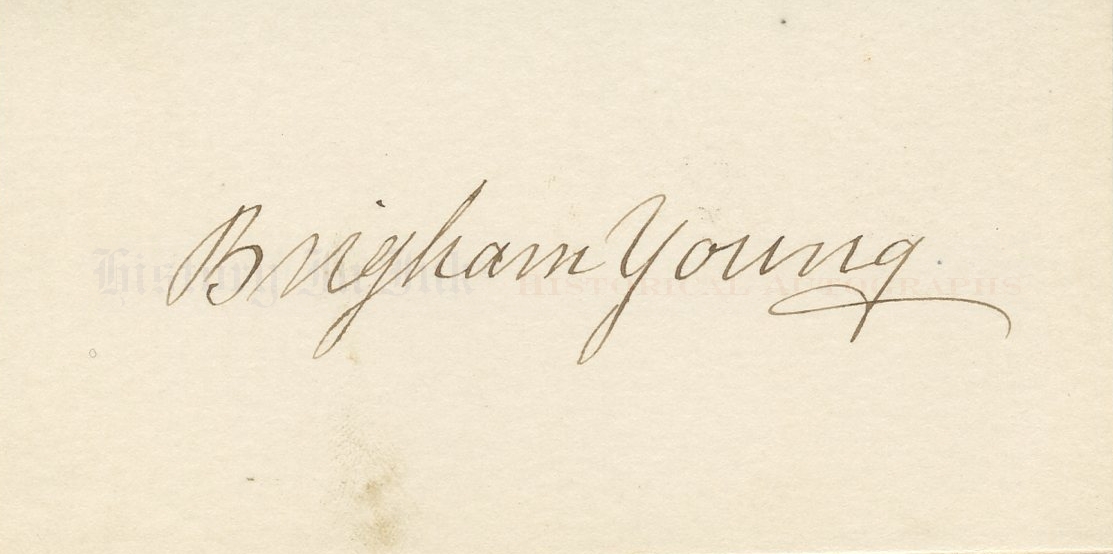 Brigham Young
History In Ink HISTORICAL AUTOGRAPHS